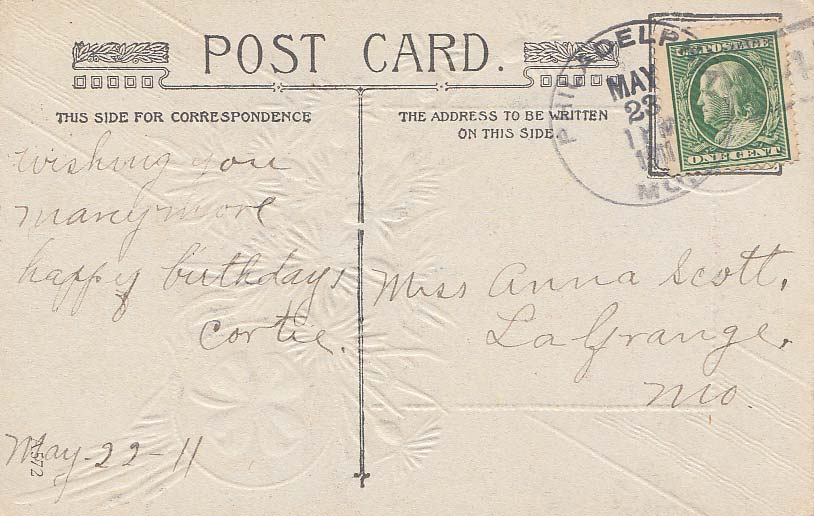 POST CARD.
THIS SIDE FOR CORRESPONDENCE
THE ADDRESS TO BE WRITTEN
ON THIS SIDE.
PHILADELP
MAY
23
1911
MO
U.S. POSTAGE
ONE CENT
Wishing you
many more
happy birthdays
Cortie.
May-22-11
Miss Anna Scott,
LaGrange,
Mo.
572